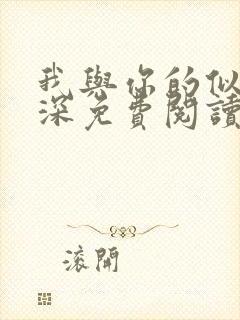 我與你的似
深免費閱讀
滾開